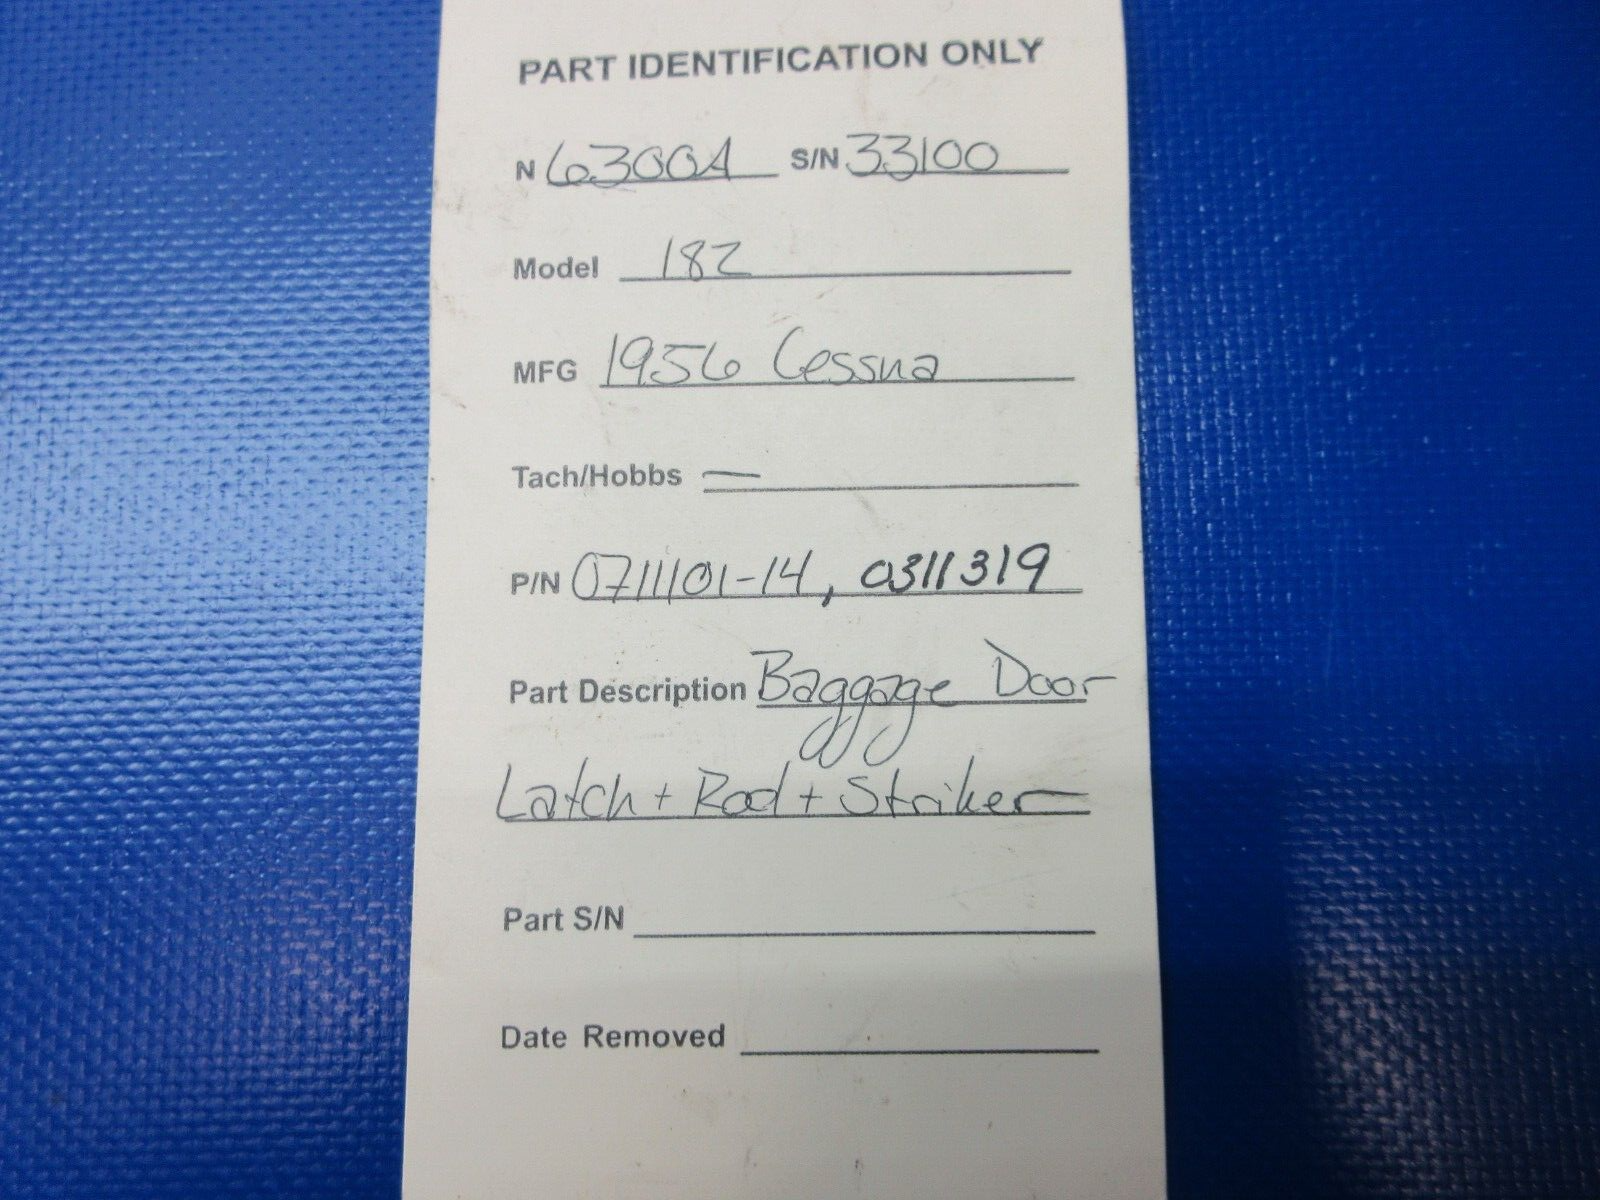 PART IDENTIFICATION ONLY
N 6300A S/N 33100
Model 182
MFG 1956 Cessna
Tach/Hobbs —
P/N 0711101-14, 0311319
Part Description Baggage Door
Latch + Rod + Striker
Part S/N
Date Removed